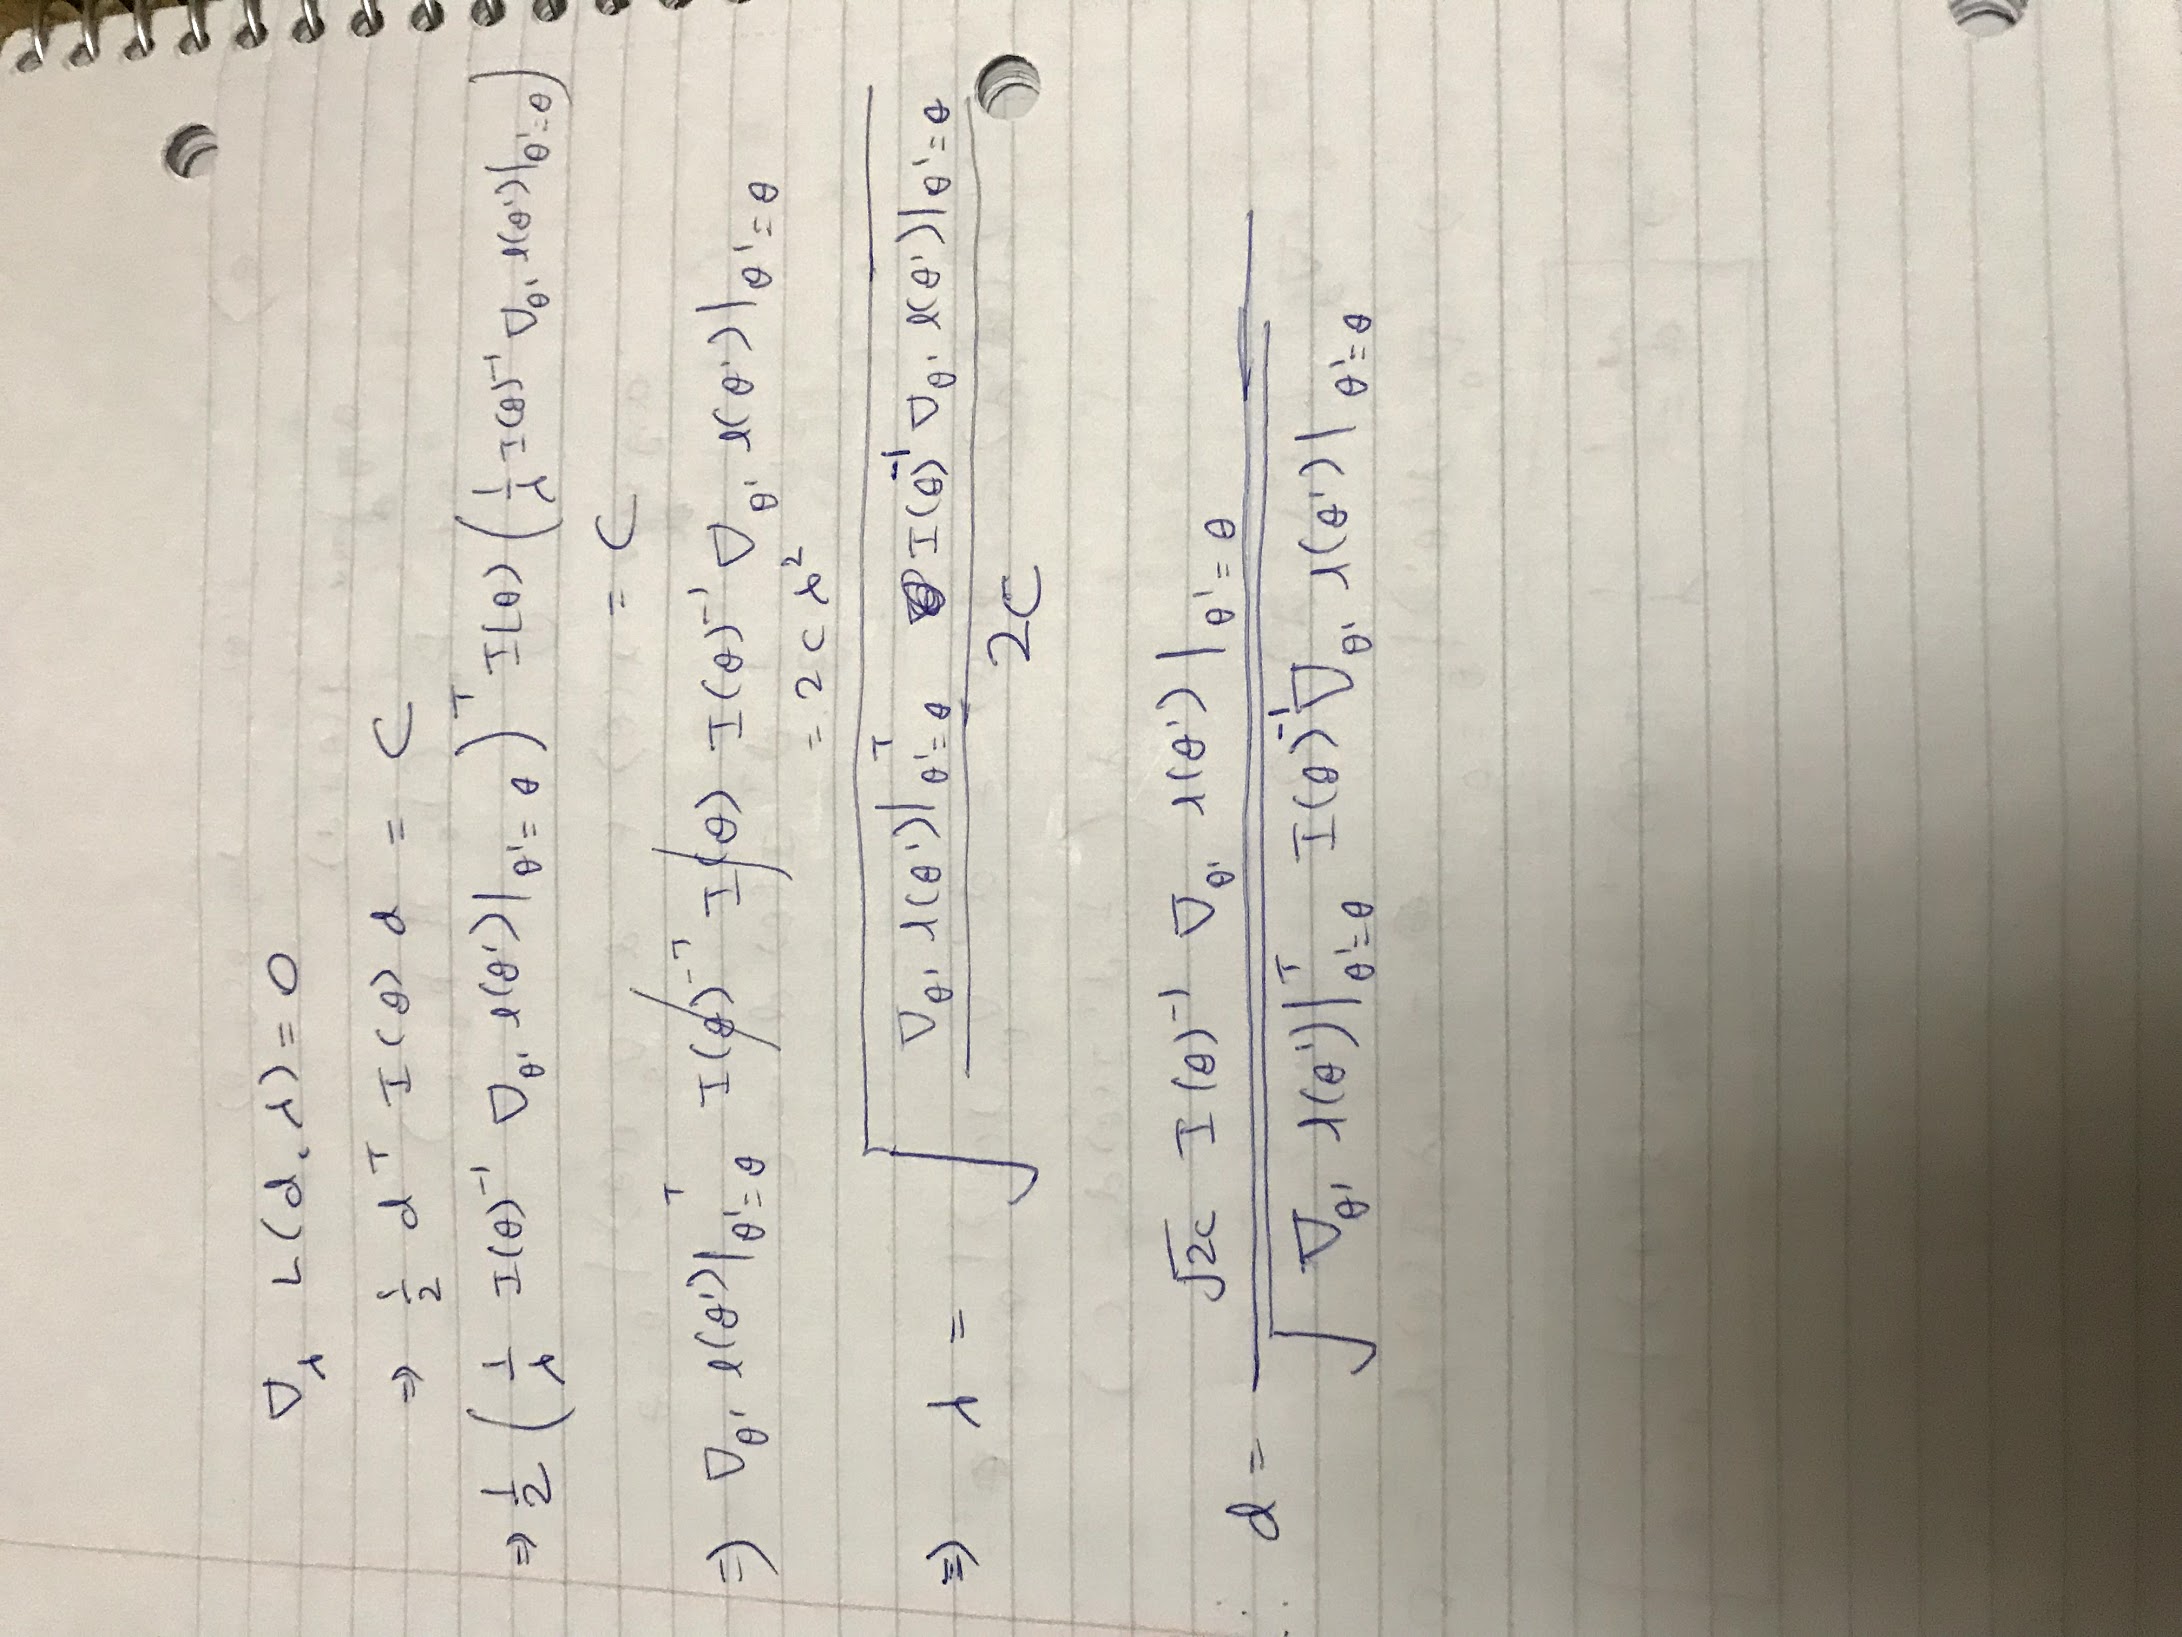 ∇_λ L(d, λ) = 0
⇒ 1/2 d^T I(θ) d = C
⇒ 1/2 (1/λ I(θ)^{-1} ∇_{θ'} l(θ')|_{θ'=θ})^T I(θ) (1/λ I(θ)^{-1} ∇_{θ'} l(θ')|_{θ'=θ})
= C
⇒ ∇_{θ'} l(θ')|^T_{θ'=θ} I(θ)^{-T} I(θ) I(θ)^{-1} ∇_{θ'} l(θ')|_{θ'=θ}
= 2cλ^2
⇒ λ = √(∇_{θ'} l(θ')|^T_{θ'=θ} I(θ)^{-1} ∇_{θ'} l(θ')|_{θ'=θ} / 2C)
∴ d = √2c I(θ)^{-1} ∇_{θ'} l(θ')|_{θ'=θ} / √(∇_{θ'} l(θ')|^T_{θ'=θ} I(θ)^{-1} ∇_{θ'} l(θ')|_{θ'=θ})